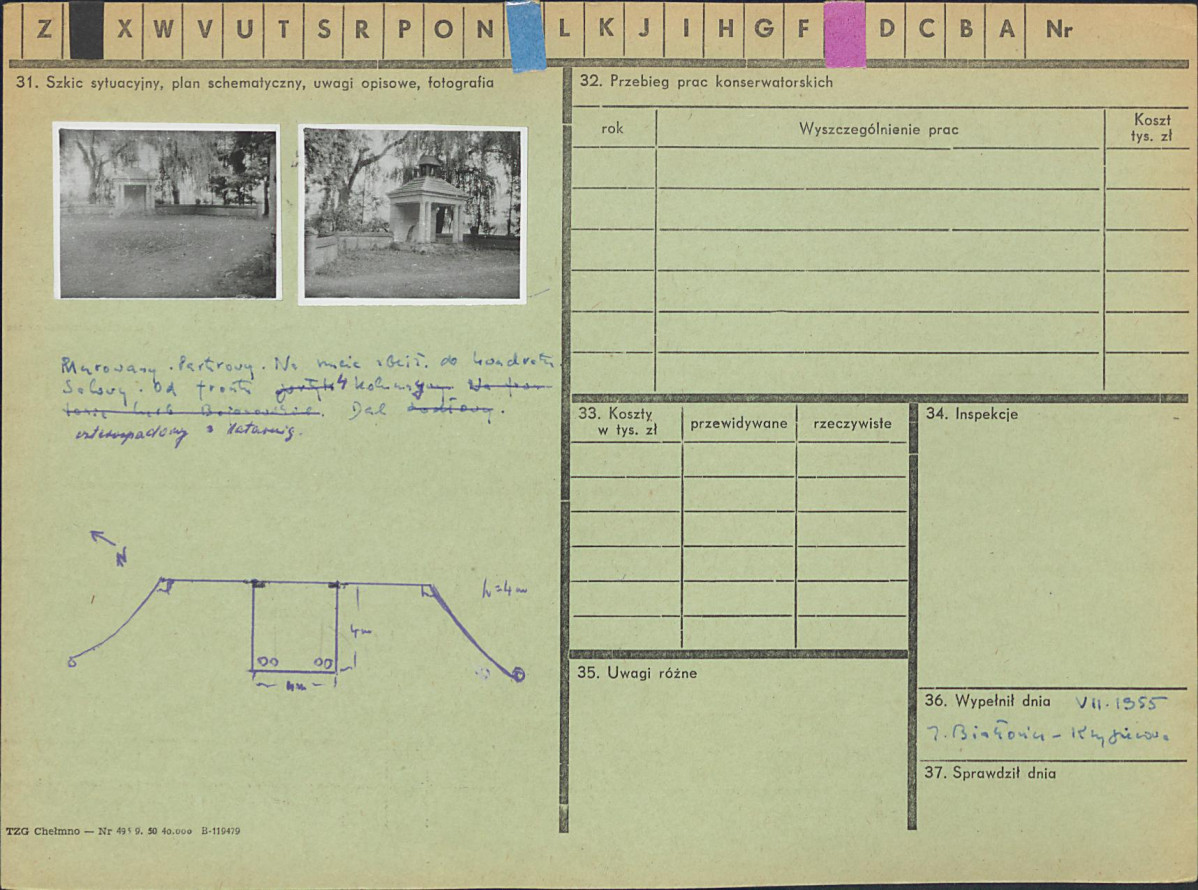 Z X W V U T S R P O N L K J I H G F D C B A Nr
31. Szkic sytuacyjny, plan schematyczny, uwagi opisowe, fotografia
Murowany. Parterowy. Na rzucie zbliż. do kwadratu.
Salowy. Od frontu 4 kolumny
Dach
czterospadowy z latarnią.
N
h=4m
4m
4m
TZG Chełmno — Nr 9. 50 40.000 B-119479
32. Przebieg prac konserwatorskich
rok Wyszczególnienie prac Koszt tys. zł
33. Koszty w tys. zł przewidywane rzeczywiste
34. Inspekcje
35. Uwagi różne
36. Wypełnił dnia VII. 1955
37. Sprawdził dnia